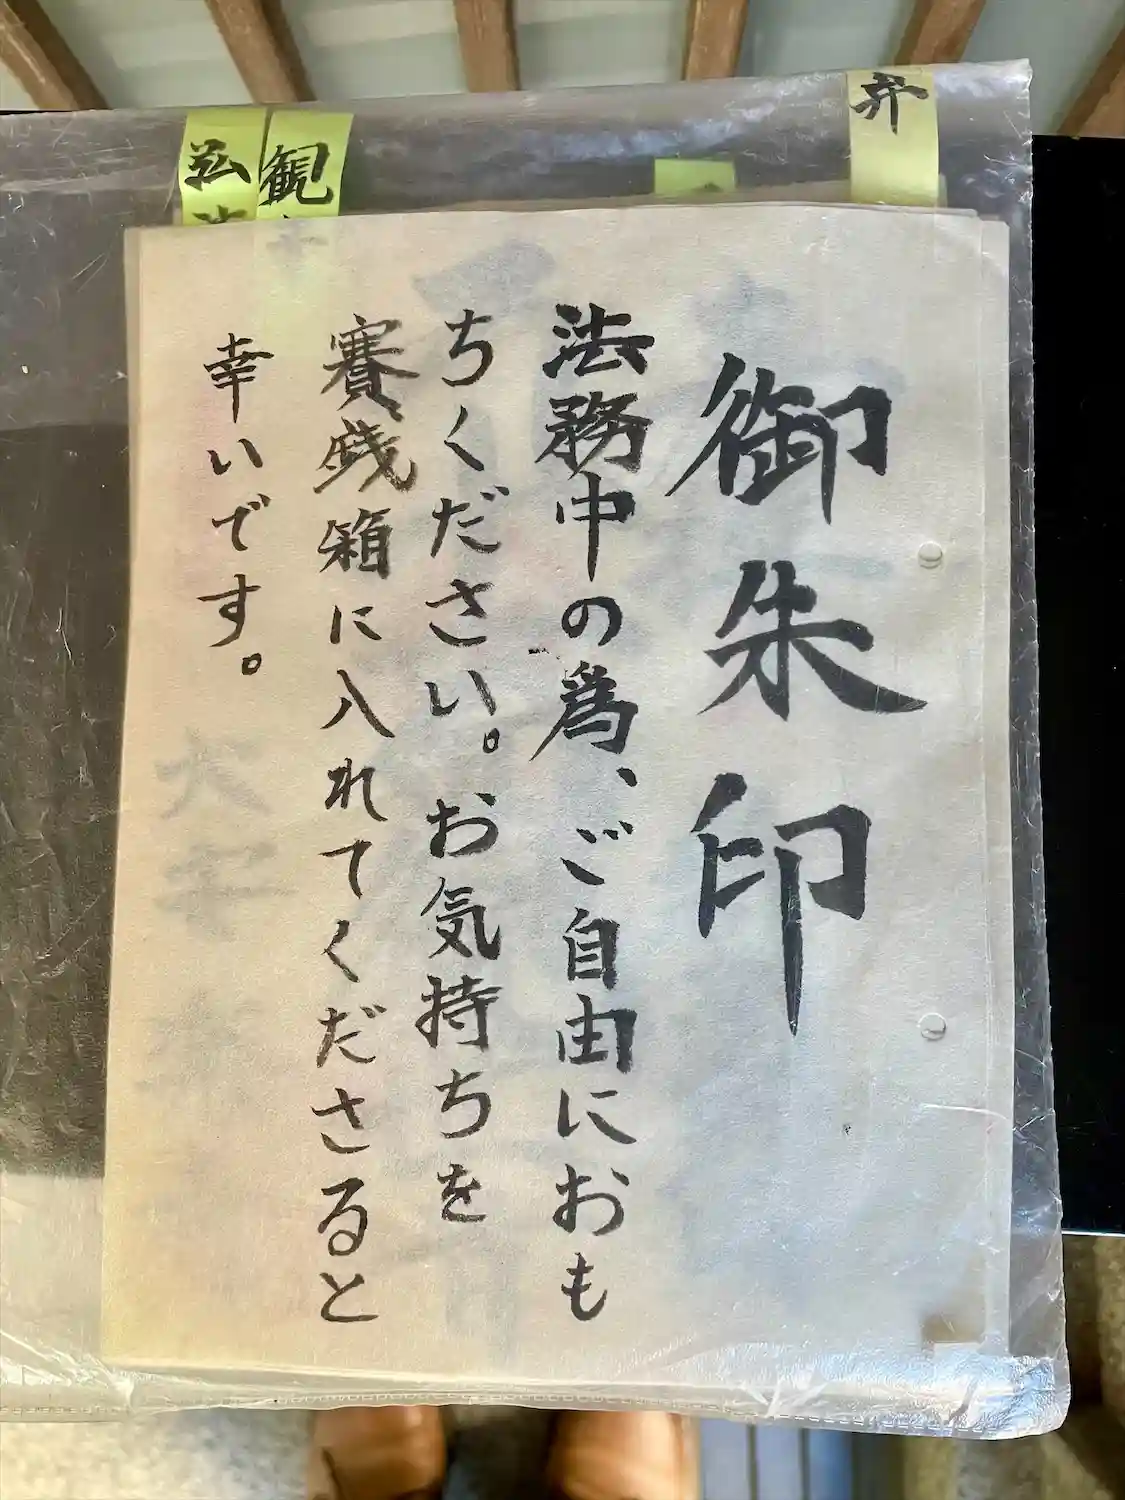 御朱印
法務中の為、ご自由におも
ちください。お気持ちを
賽銭箱に入れてくださると
幸いです。
弁
観
弘